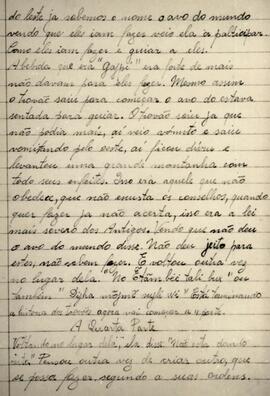 do leste ja sabemos o nome o avo do mundo
vendo que eles iam fazer veio ela a participar
como eles iam fazer e guiar a eles.
A bebida que era "Gahpi" era forte de mais
não davam para eles fazer. Mesmo assim
o trovão saiu para começar o avo do estava
sentada para guiar. O trovão saiu ja que
não podia mais, ai veio vomito e saiu
vomitando pelo oeste, ai ficou duro e
levantou uma grande montanha com
todo seus enfeites. Isso era aquele que não
obedece, que não escuta os conselhos, quando
quer fazer ja não acerta, isso era a lei
mais severo dos Antigos. Vendo que não deu
o avo do mundo disse. Não deu jeito para
estes, não sabem fazer. E voltou outra vez
no lugar dela. "No Etãm bëi tali bu" ou
também " Está terminando
a historia dos trovões agora vai começar a 4 parte.
A Quarta Parte
Voltando no lugar dela, ela disse "Não esta dando
certo." Pensou outra vez de criar outro, que
se possa fazer, segundo a suas ordens.